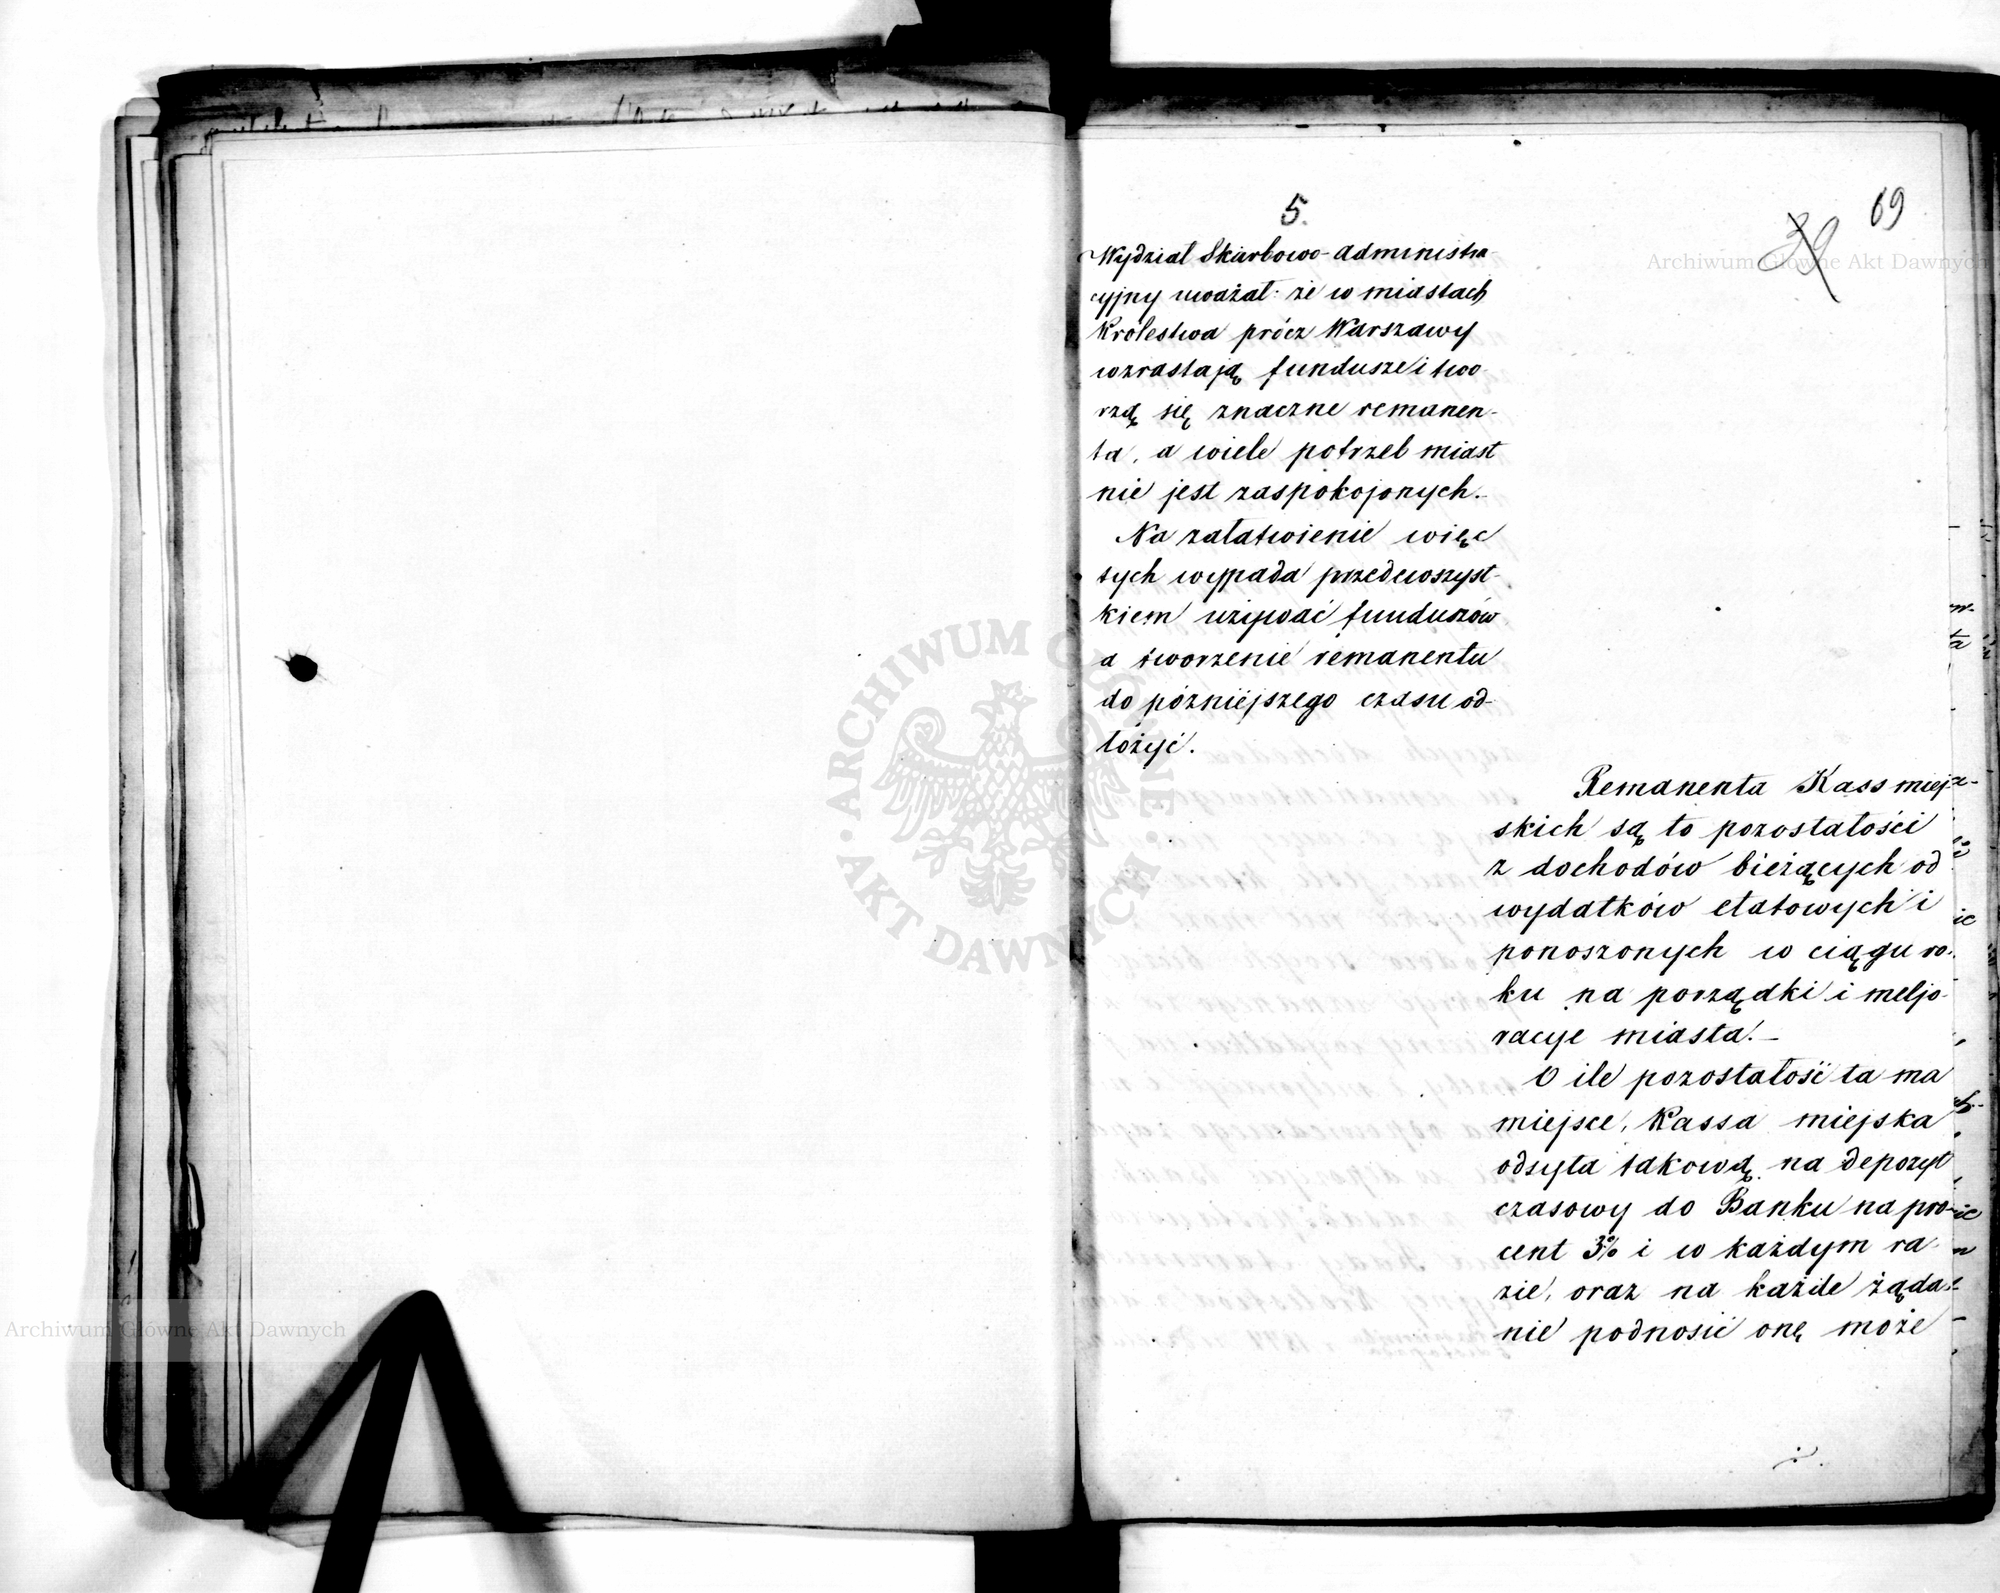 69
39
5.
Wydział Skarbowo-Administra-
cyjny uważał: że w miastach
Królestwa prócz Warszawy
wzrastają fundusze i two-
rzą się znaczne remanen-
ta, a wiele potrzeb miast
nie jest zaspokojonych.-
Na załatwienie więc
tych wypada przedewszyst-
kiem używać funduszów
a tworzenie remanentu
do późniejszego czasu od-
łożyć.
Remanenta Kass miej-
skich są to pozostałości
z dochodów bieżących od
wydatków etatowych i
ponoszonych w ciągu ro-
ku na porządki i meljo-
racye miasta.-
O ile pozostałość ta ma
miejsce, Kassa miejska
odsyła takową na depozyt
czasowy do Banku na pro-
cent 3% i w każdym ra-
zie, oraz na każde żąda-
nie podnosić onę może
ARCHIWUM GŁÓWNE AKT DAWNYCH
Archiwum Główne Akt Dawnych
Archiwum Główne Akt Dawnych